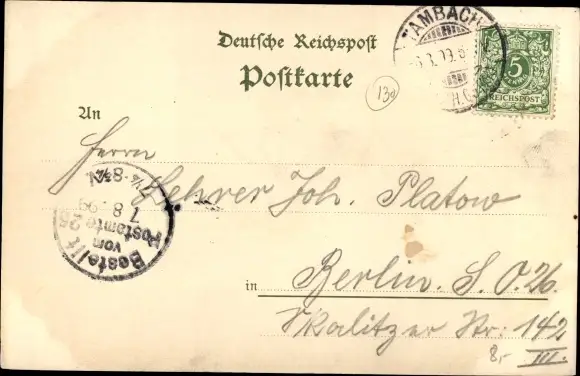 Deutsche Reichspost
Postkarte
TAMBACH
5
REICHSPOST
13a
An
Herrn
Lehrer Joh. Platow
Bestellt
vom
Postamte 26
7 8.99
in Berlin. S. O. 26.
Skalitzer Str. 142
III.
8,-